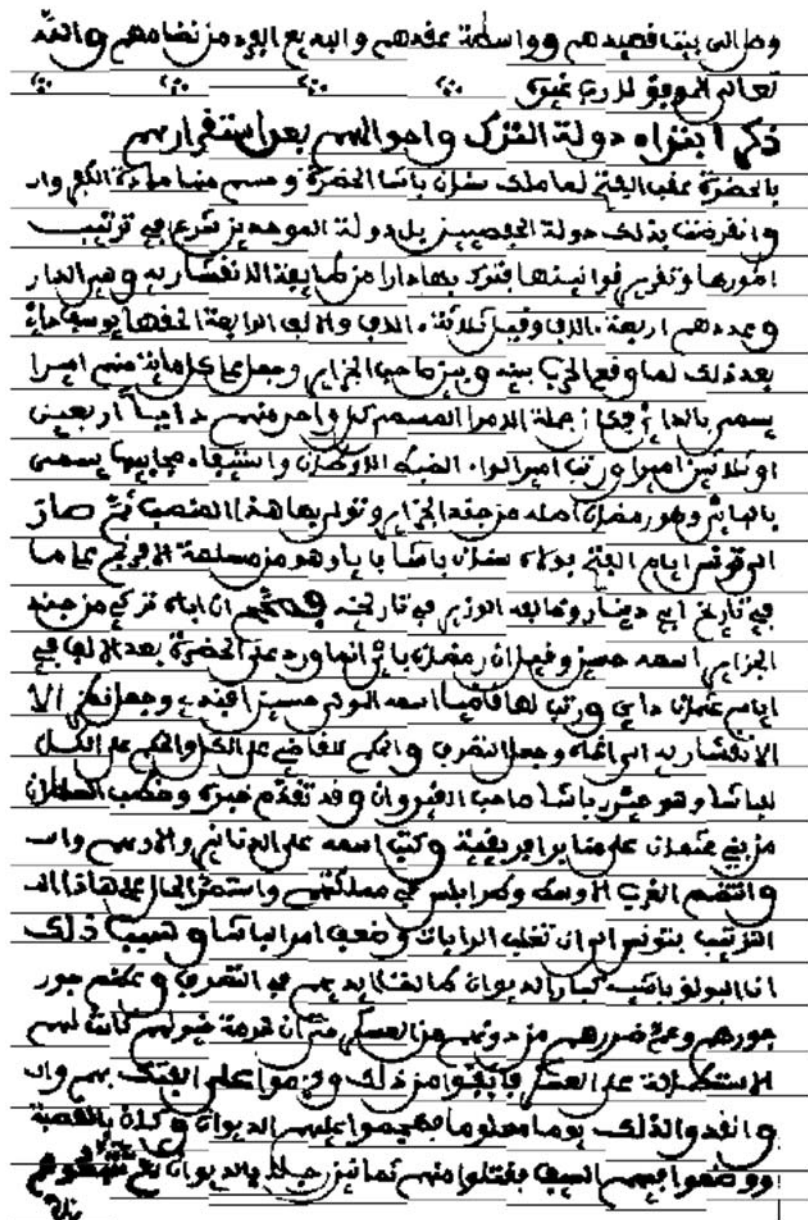 وطالى بيتا قصيدهم وواسطة عقدهم والبديع الفرد من نضامهم والله
تعالى الموفق لا رب غيره
ذكر ابتداء دولة الترك واحوالهم بعد استقرارهم
بالحضرة عقب الفتح لما ملك سنان باشا الحضرة وحسم منها مادة الكفر وا
وانقرضت بذلك دولة الحفصيين بل دولة الموحدين شرع في ترتيب
امورها وتقرير قوانينها فترك بها دارا من طايفة الانقشاريه وهى الدار
وعددهم اربعة الاف وقيل ثلاثة الاف والالف الرابعة الحقها يوسف داي
بعد ذلك لما وقع الحرب بينه وبين صاحب الجزاير وجعل على كل ماية منهم اميرا
يسمى بالداي فكا جملة الامرا المسمى كل واحد منهم دايا اربعين
او ثلاثين اميرا ورتب امير الواء لضبط الاوطان واستيفاء مجابيها يسمى
بالباي وهو رمضان اصله من جند الجزاير وتولى بها هذا المنصب ثم صار
الى تونس ايام الفتح بولاه سنان باشا بايا وهو من مسلمة الافرنج على ما
في تاريخ ابي دينار وخالفه الوزير في تاريخه ان اباه تركي من جند
الجزاير اسمه حسين وقيل ان رمضان باي انما ورد على الحضرة بعد الالف في
ايام عثمان داي ورتب لها قاضيا اسمه المولى حسين افندي وجعل نضر الا
الانقشاريه الى اغاه وجعل التصرف والحكم للقاضي على الكل والحكم على الكل
للباشا وهو حيدر باشا صاحب القيروان وقد تقدم خبره وخطب السلطان
من بني عثمان على منابر افريقية وكتب اسمه على الدنانير والدراهم وا
وانتضم الغرب الاوسط وطرابلس في مملكتهم واستمر الحال على هاذا ال
الترتيب بتونس الى ان تغلب الرايات وضعف امر الباشا وسبب ذلك
ان البولوباشيه كبار الديوان طالت ايديهم في التصرف وعظم جور
جورهم وعم ضررهم من دونهم من العسكر حتى ان خدمة خيولهم كانت لهم
الاستطالة على العسكر فانفوا من ذلك وعزموا على الفتك بهم وا
واتعدوا لذلك يوما معلوما فهجموا عليهم الديوان وكان بالقصبة
ووضعوا فيهم السيف فقتلوا منهم ثمانين رجلا بالديوان ثم